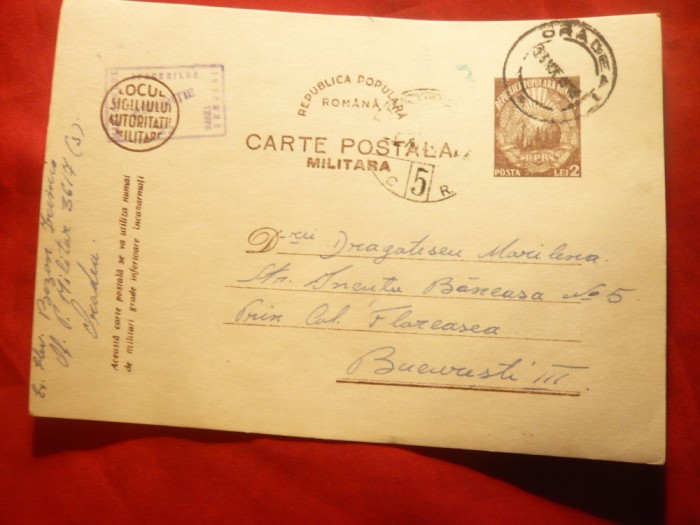 REPUBLICA POPULARA
ROMÂNĂ
CARTE POSTALA
MILITARA
LOCUL
SIGILIULUI
AUTORITATII
MILITARE
ORADEA 1
REPUBLICA POPULARA
RPR
POSTA LEI 2
C. 5 R.
D-rei Dragatescu Marilena
Str. Ancuta Băneasa No 5
Prin Cal. Floreasca
Bucuresti III
Această carte postală se va utiliza numai
de militari grade inferioare incazarmati
Militar 3617 (s)
Oradea